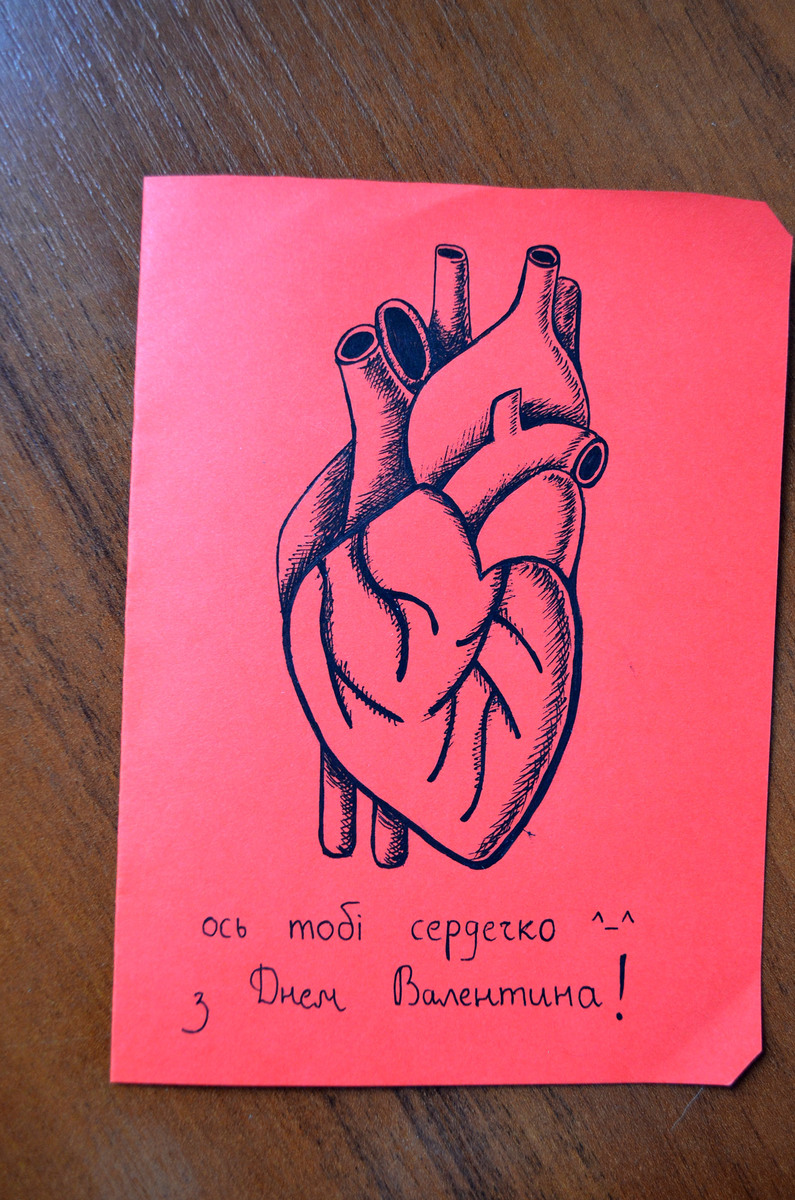 ось тобі сердечко ^_^
з Днем Валентина!